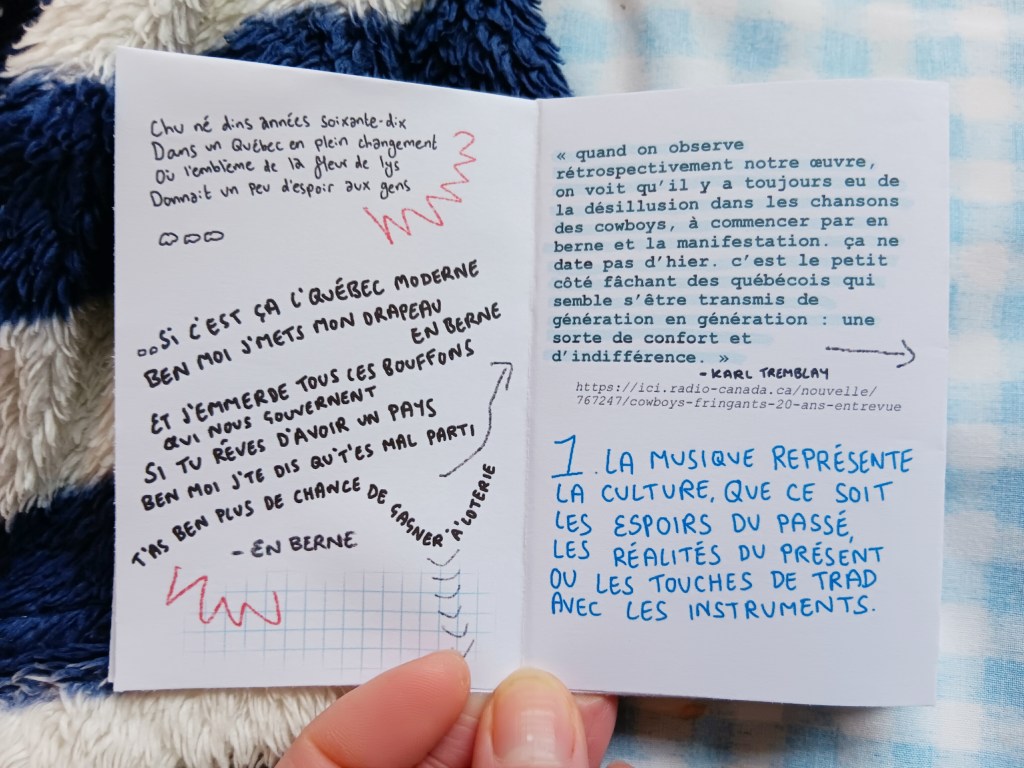 Chu né dins années soixante-dix
Dans un Québec en plein changement
Où l'emblème de la fleur de lys
Donnait un peu d'espoir aux gens
...Si c'est ça l'Québec moderne
Ben moi j'mets mon drapeau
en berne
Et j'emmerde tous ces bouffons
qui nous gouvernent
Si tu rêves d'avoir un pays
Ben moi j'te dis qu't'es mal parti
T'as ben plus de chance de gagner à l'loterie
- En berne
« quand on observe
rétrospectivement notre œuvre,
on voit qu'il y a toujours eu de
la désillusion dans les chansons
des cowboys, à commencer par en
berne et la manifestation. ça ne
date pas d'hier. c'est le petit
côté fâchant des québécois qui
semble s'être transmis de
génération en génération : une
sorte de confort et
d'indifférence. »
- Karl Tremblay
https://ici.radio-canada.ca/nouvelle/
767247/cowboys-fringants-20-ans-entrevue
1. La musique représente
la culture, que ce soit
les espoirs du passé,
les réalités du présent
ou les touches de trad
avec les instruments.